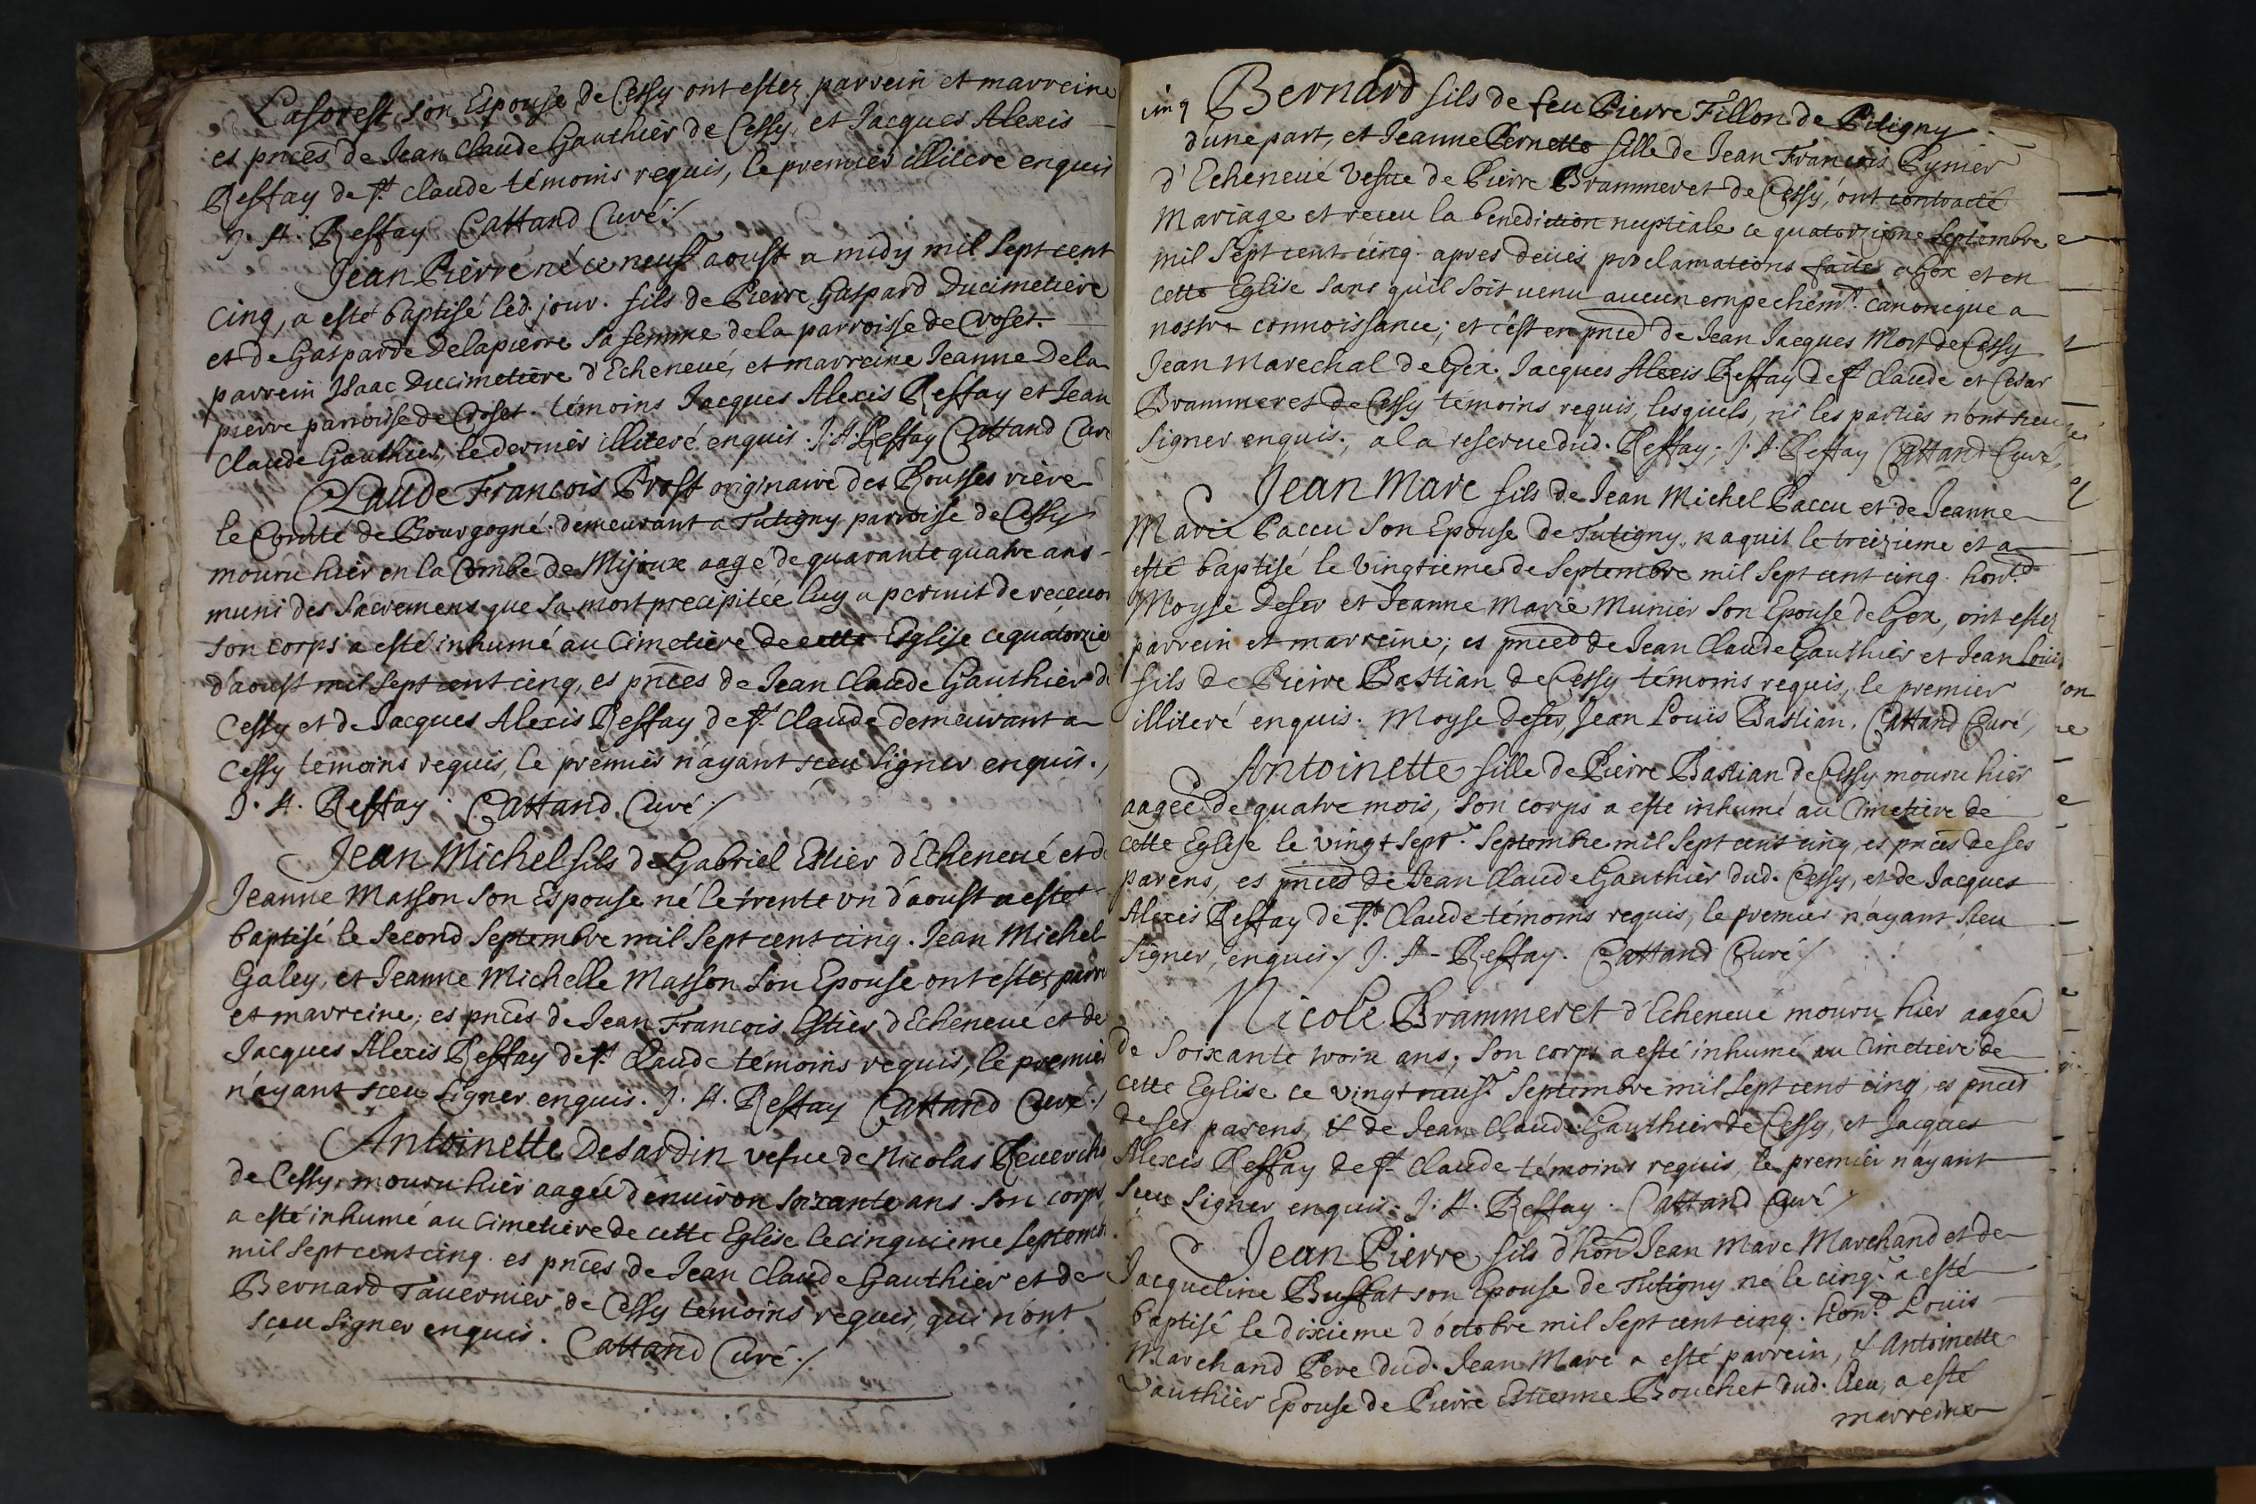 Laforest son Espouse de Cessy ont estez parrein et marreine
es pnces de Jean Claude Gauthier de Cessy, et Jacques Alexis
Reffay de St. Claude témoins requis, le premier illiteré enquis
J. A. Reffay Cattand Curé./
Jean Pierre né ce neufe. aoust a midy mil sept cent
cinq, a esté baptisé led. jour. fils de Pierre Gaspard Ducimetiere
et de Gasparde Delapierre sa femme de la parroisse de Croset.
parrein Isaac Ducimetiere d'Echeneué, et marreine Jeanne Dela
pierre parroisse de Croset. témoins Jacques Alexis Reffay et Jean
Claude Gauthier, le dernier illiteré enquis. J. A. Reffay Cattand Curé
Claude Francois Prost originaire des Rousses riere
le Comté de Bourgogne demeurant a Tutigny parroisse de Cessy
mouru hier en la Combe de Mijoux aagé de quarante quatre ans
muni des sacremens que sa mort precipitée luy a permit de recevoir
son corps a esté inhumé au Cimetiere de cette Esglise ce quatorzie
d'aoust mil sept cent cinq, es pnces de Jean Claude Gauthier de
Cessy et de Jacques Alexis Reffay de St. Claude demeurant a
Cessy temoins requis, le premier n'ayant sceu signer enquis.,
J. A. Reffay. Cattand Curé./
Jean Michel fils de Gabriel Estier d'Echeneué et de
Jeanne Masson son Espouse né le trente un d'aoust a esté
baptisé le second Septembre mil sept cent cinq. Jean Michel
Galey, et Jeanne Michelle Masson son Epouse ont estez parre
et marreine; es pnces de Jean Francois Estier d'Echeneué et de
Jacques Alexis Reffay de St. Claude témoins requis, le premier
n'ayant sceu signer enquis. J. A. Reffay Cattand Curé./
Antoinette Desardin vefue de Nicolas Reuercho
de Cessy, mouru hier aagée d'enuiron soixante ans. son corps
a esté inhumé au Cimetiere de cette Eglise le cinquieme Septemb
mil sept cent cinq. es pnces de Jean Claude Gauthier et de
Bernard Tauernier de Cessy temoins requis, qui n'ont
sceu signer enquis. Cattand Curé./
cinq Bernard fils de feu Pierre Fillon de Pitigny
d'une part, et Jeanne Pernette fille de Jean Francois Rynier
d'Echeneué Vefue de Pierre Brammeret de Cessy, ont contracté
Mariage et receu la benediction nuptiale ce quatorzieme Septembre
mil sept cent cinq. apres deües proclamations faites a Gex et en
cette Eglise sans qu'il soit uenu aucun empechemt. canonique a
nostre connoissance; et c'est en pnce de Jean Jacques Mort de Cessy
Jean Marechal de Gex. Jacques Alexis Reffay de St. Claude et Cesar
Brammeret de Cessy témoins requis, lesquels, ni les parties n'ont sceu
signer enquis., a la reserue dud. Reffay; J. A. Reffay Cattand Curé,
Jean Marc fils de Jean Michel Paccu et de Jeanne
Marie Paccu son Epouse de Tutigny, naquit le treizieme et a
esté baptisé le vingtieme de Septembre mil sept cent cinq. hond.
Moyse Deser et Jeanne Marie Munier son Epouse de Gex, ont estez
parrein et marreine; es pnces de Jean Claude Gauthier et Jean Louis
fils de Pierre Bastian de Cessy témoins requis, le premier
illiteré enquis. Moyse Deser, Jean Louïs Bastian. Cattand Curé,
Antoinette fille de Pierre Bastian de Cessy mouru hier
aagée de quatre mois, son corps a esté inhumé au Cimetiere de
cette Eglise le vingt sept. Septembre mil sept cent cinq, es pnces de ses
parens, es pnces de Jean Claude Gauthier dud. Cessy, et de Jacques
Alexis Reffay de St. Claude témoins requis, le premier n'ayant sceu
signer, enquis./ J. A. Reffay. Cattand Curé/
Nicole Brammeret d'Echeneué mouru hier aagée
de soixante troix ans; son corps a esté inhumé au Cimetiere de
cette Eglise ce vingt neufe. Septembre mil sept cent cinq, es pnces
de ses parens, & de Jean Claude Gauthier de Cessy, et Jacques
Alexis Reffay de St. Claude témoins requis, le premier n'ayant
sceu signer enquis. J. A. Reffay. Cattand Curé/
Jean Pierre fils d'hond Jean Marc Marchand et de
Jacqueline Buffat son Epouse de Tutigny né le cinqe. a esté
baptisé le dixieme d'octobre mil sept cent cinq. hond. Louïs
Marchand Pere dud. Jean Marc a esté parrein, & Antoinette
Vauthier Epouse de Pierre Estienne Bouchet dud. lieu, a esté
marreine